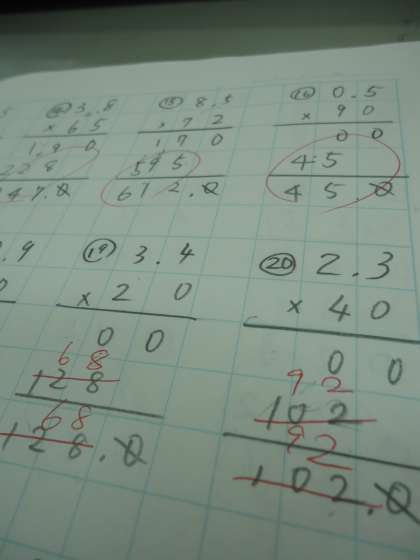 3.8
× 65
190
228
247.0
⑮ 8.5
× 72
170
595
612.0
⑯ 0.5
× 90
00
45
45.0
.9
0
⑲ 3.4
× 20
00
68
128
68
128.0
⑳ 2.3
× 40
00
92
102
92
102.0